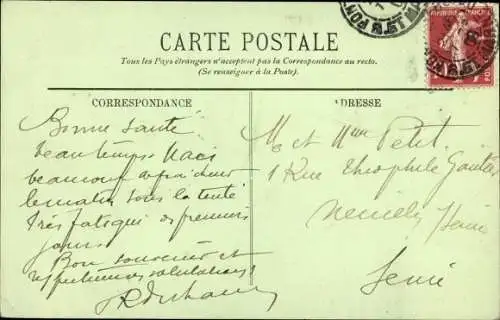 CARTE POSTALE
Tous les Pays étrangers n'acceptent pas la Correspondance au recto.
(Se renseigner à la Poste).
CORRESPONDANCE
Bonne santé
beau temps Mais
beaucoup
le matin sous la tente
très fatigué premiers
jours
Bon souvenir et
respectueuses salutations
ADRESSE
M et Mme Petit
1 Rue Théophile Gautier
Neuilly Seine
Seine